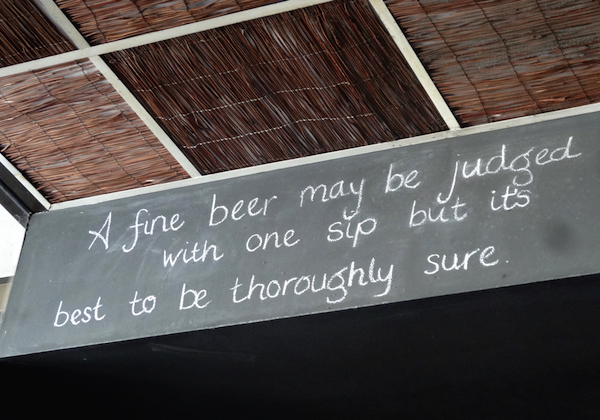 A fine beer may be judged
with one sip but it's
best to be thoroughly sure.